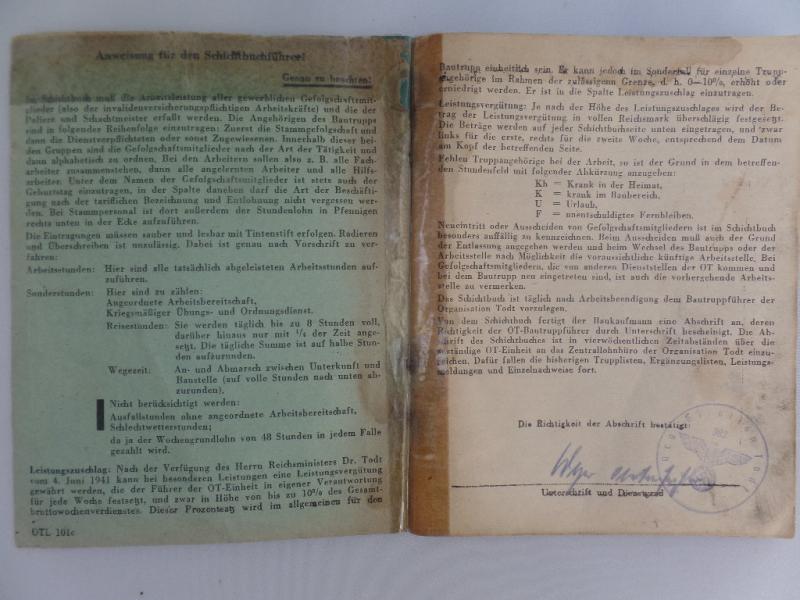 Anweisung für den Schichtbuchführer!
Genau zu beachten!
Im Schichtbuch muß die Arbeitsleistung aller gewerblichen Gefolgschaftsmit-
glieder (also der invalidenversicherungspflichtigen Arbeitskräfte) und die der
Poliere und Schachtmeister erfaßt werden. Die Angehörigen des Bautrupps
sind in folgender Reihenfolge einzutragen: Zuerst die Stammgefolgschaft und
dann die Dienstverpflichteten oder sonst Zugewiesenen. Innerhalb dieser bei-
den Gruppen sind die Gefolgschaftsmitglieder nach der Art der Tätigkeit und
dann alphabetisch zu ordnen. Bei den Arbeitern sollen also z. B. alle Fach-
arbeiter zusammenstehen, dann alle angelernten Arbeiter und alle Hilfs-
arbeiter. Unter dem Namen der Gefolgschaftsmitglieder ist stets auch der
Geburtstag einzutragen, in der Spalte daneben darf die Art der Beschäfti-
gung nach der tariflichen Bezeichnung und Entlohnung nicht vergessen wer-
den. Bei Stammpersonal ist dort außerdem der Stundenlohn in Pfennigen
rechts unten in der Ecke aufzuführen.
Die Eintragungen müssen sauber und lesbar mit Tintenstift erfolgen. Radieren
und Überschreiben ist unzulässig. Dabei ist genau nach Vorschrift zu ver-
fahren:
Arbeitsstunden: Hier sind alle tatsächlich abgeleisteten Arbeitsstunden auf-
zuführen.
Sonderstunden: Hier sind zu zählen:
Angeordnete Arbeitsbereitschaft,
Kriegsmäßiger Übungs- und Ordnungsdienst.
Reisestunden: Sie werden täglich bis zu 8 Stunden voll,
darüber hinaus nur mit 1/4 der Zeit ange-
setzt. Die tägliche Summe ist auf halbe Stun-
den aufzurunden.
Wegezeit: An- und Abmarsch zwischen Unterkunft und
Baustelle (auf volle Stunden nach unten ab-
zurunden).
Nicht berücksichtigt werden:
Ausfallstunden ohne angeordnete Arbeitsbereitschaft,
Schlechtwetterstunden;
da ja der Wochengrundlohn von 48 Stunden in jedem Falle
gezahlt wird.
Leistungszuschlag: Nach der Verfügung des Herrn Reichsministers Dr. Todt
vom 4. Juni 1941 kann bei besonderen Leistungen eine Leistungsvergütung
gewährt werden, die der Führer der OT-Einheit in eigener Verantwortung
für jede Woche festsetzt, und zwar in Höhe von bis zu 10% des Gesamt-
bruttowochenverdienstes. Dieser Prozentsatz wird im allgemeinen für den
OTL 101c
Bautrupp einheitlich sein. Er kann jedoch im Sonderfall für einzelne Trupp-
angehörige im Rahmen der zulässigen Grenze, d. h. 0—10%, erhöht oder
erniedrigt werden. Er ist in die Spalte Leistungszuschlag einzutragen.
Leistungsvergütung: Je nach der Höhe des Leistungszuschlages wird der Be-
trag der Leistungsvergütung in vollen Reichsmark überschlägig festgesetzt.
Die Beträge werden auf jeder Schichtbuchseite unten eingetragen, und zwar
links für die erste, rechts für die zweite Woche, entsprechend dem Datum
am Kopf der betreffenden Seite.
Fehlen Truppangehörige bei der Arbeit, so ist der Grund in dem betreffen-
den Stundenfeld mit folgender Abkürzung anzugeben:
Kh = Krank in der Heimat,
K = krank im Baubereich,
U = Urlaub,
F = unentschuldigtes Fernbleiben.
Neueintritt oder Ausscheiden von Gefolgschaftsmitgliedern ist im Schichtbuch
besonders auffällig zu kennzeichnen. Beim Ausscheiden muß auch der Grund
der Entlassung angegeben werden und beim Wechsel des Bautrupps oder der
Arbeitsstelle nach Möglichkeit die voraussichtliche künftige Arbeitsstelle. Bei
Gefolgschaftsmitgliedern, die von anderen Dienststellen der OT kommen und
bei dem Bautrupp neu eingetreten sind, ist auch die vorhergehende Arbeits-
stelle zu vermerken.
Das Schichtbuch ist täglich nach Arbeitsbeendigung dem Bautruppführer der
Organisation Todt vorzulegen.
Von dem Schichtbuch fertigt der Baukaufmann eine Abschrift an, deren
Richtigkeit der OT-Bautruppführer durch Unterschrift bescheinigt. Die Ab-
schrift des Schichtbuches ist in vierwöchentlichen Zeitabständen über die
zuständige OT-Einheit an das Zentrallohnbüro der Organisation Todt einzu-
reichen. Dafür fallen die bisherigen Trupplisten, Ergänzungslisten, Leistungs-
meldungen und Einzelnachweise fort.
Die Richtigkeit der Abschrift bestätigt:
Organisation Todt
Unterschrift und Dienstgrad